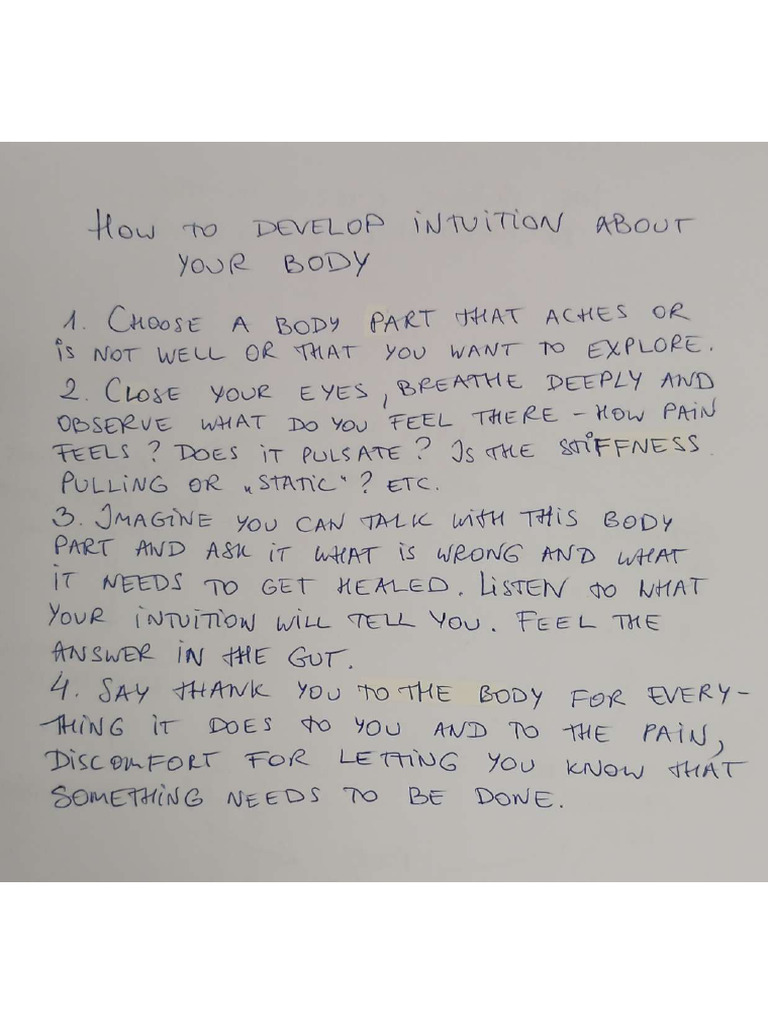 HOW TO DEVELOP INTUITION ABOUT
YOUR BODY
1. CHOOSE A BODY PART THAT ACHES OR
IS NOT WELL OR THAT YOU WANT TO EXPLORE.
2. CLOSE YOUR EYES, BREATHE DEEPLY AND
OBSERVE WHAT DO YOU FEEL THERE – HOW PAIN
FEELS? DOES IT PULSATE? IS THE STIFFNESS
PULLING OR „STATIC“? ETC.
3. IMAGINE YOU CAN TALK WITH THIS BODY
PART AND ASK IT WHAT IS WRONG AND WHAT
IT NEEDS TO GET HEALED. LISTEN TO WHAT
YOUR INTUITION WILL TELL YOU. FEEL THE
ANSWER IN THE GUT.
4. SAY THANK YOU TO THE BODY FOR EVERY-
THING IT DOES TO YOU AND TO THE PAIN,
DISCOMFORT FOR LETTING YOU KNOW THAT
SOMETHING NEEDS TO BE DONE.